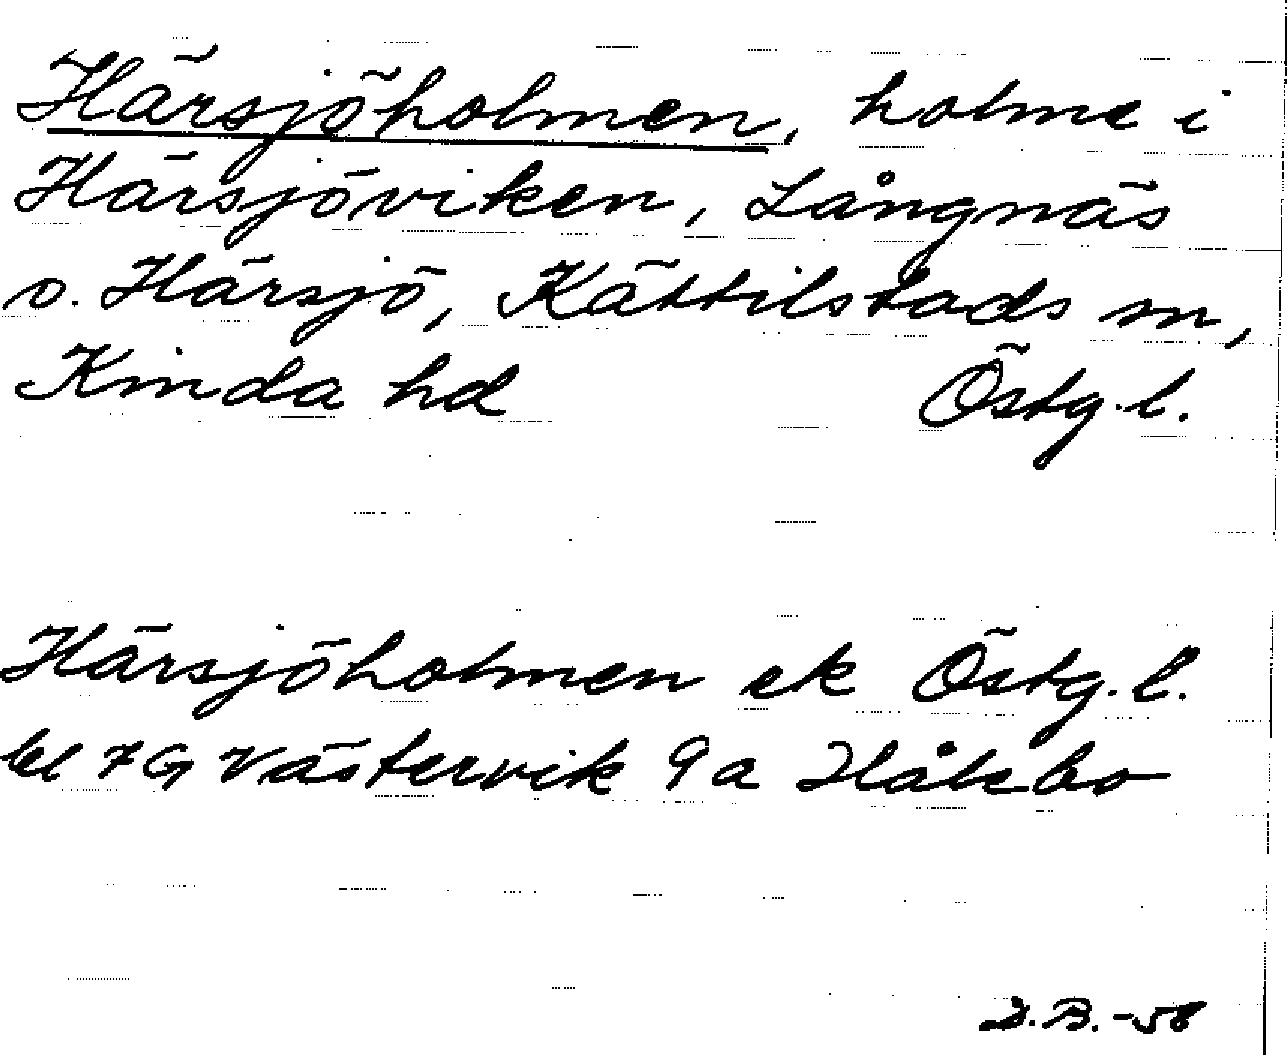 Härsjöholmen, holme i
Härsjöviken, Långnäs
o. Härsjö, Kättilstads sn,
Kinda hd Östg. l.
Härsjöholmen ek Östg. l.
bl 7G Västervik 9a Hålsbo
D.B.-58